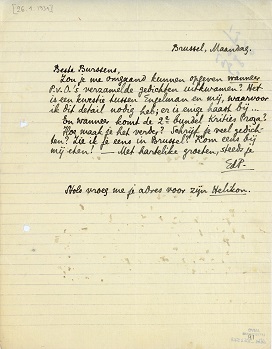 [26.1.1931]
Brussel, Maandag.
Beste Burssens,
Zou je me omgaand kunnen opgeven wanneer
P.v.O.'s verzamelde gedichten uitkwamen? Het
is een kwestie tussen Engelman en mij, waarvoor
ik dit detail nodig heb; er is enige haast bij...
En wanneer komt de 2e bundel Krities Proza?
Hoe maak je het verder? Schrijf je veel gedich-
ten? Zie ik je eens in Brussel? Kom eens bij
mij eten! — Met hartelike groeten, steeds je
EdP.
Stols vroeg me je adres voor zijn Helikon.